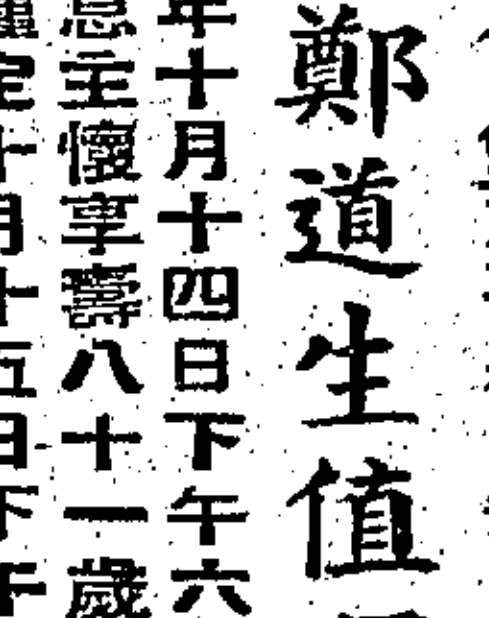 鄭道生值
年十月十四日下午六
息主懷享壽八十一歲
定十月十五日下午